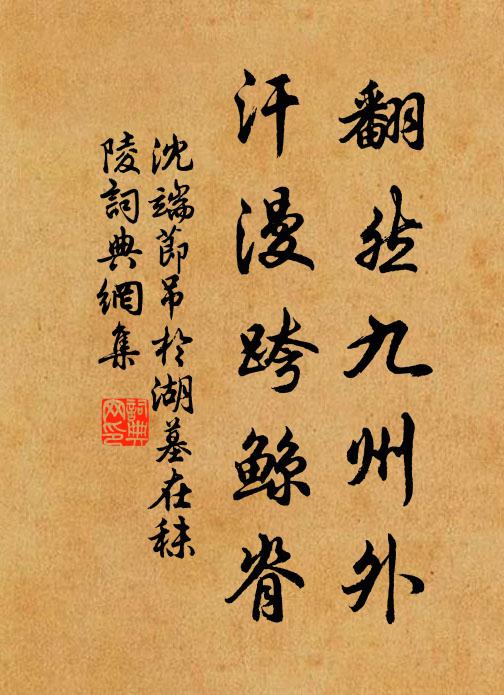 翻然九州外
汗漫跨鲸脊
沈端節吊於湖墓在秣
陵詞典網集
詞典
网印